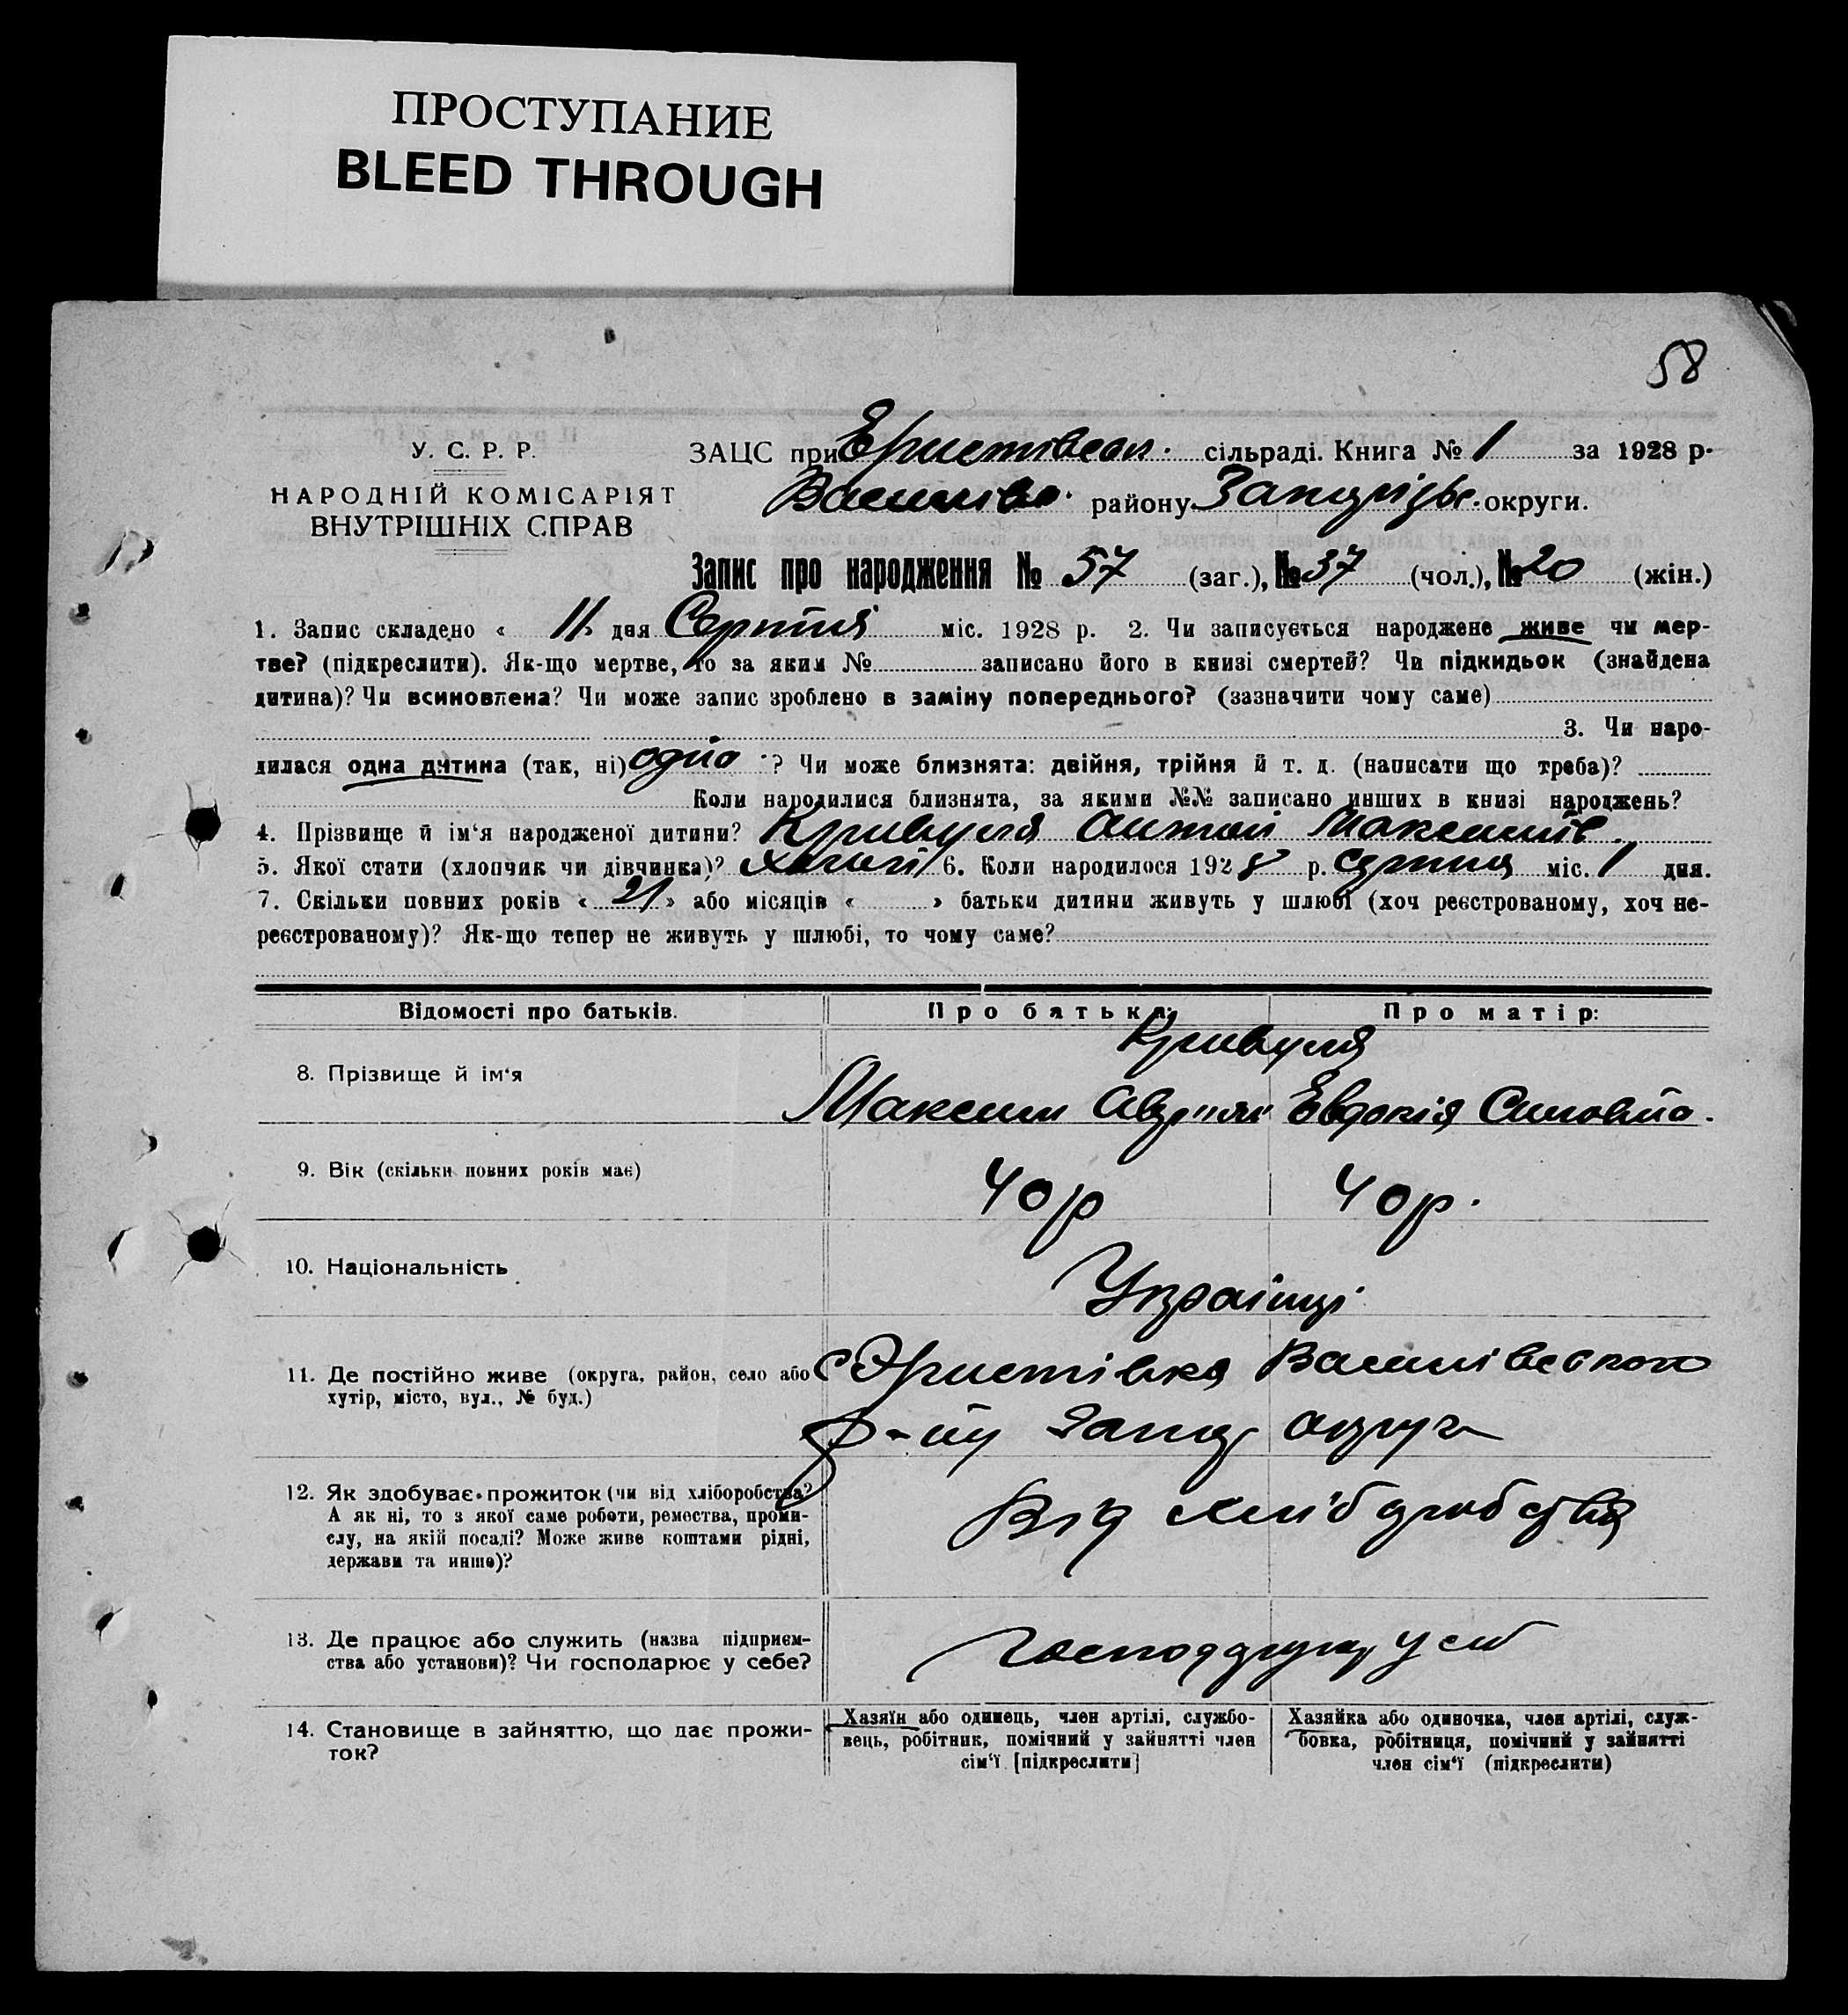 ПРОСТУПАНИЕ
BLEED THROUGH
58
У. С. Р. Р.
НАРОДНІЙ КОМІСАРІЯТ
ВНУТРІШНІХ СПРАВ
ЗАЦС при Ериставсок. сільраді. Книга № 1 за 1928 р.
району Запорізьк. округи.
Запис про народження № 57 (заг.), № 37 (чол.), № 20 (жін.)
1. Запис складено « 11 » дня Серпня міс. 1928 р. 2. Чи записується народжене живе чи мер-
тве? (підкреслити). Як-що мертве, то за яким № записано його в книзі смертей? Чи підкидьок (знайдена
дитина)? Чи всиновлена? Чи може запис зроблено в заміну попереднього? (зазначити чому саме)
3. Чи наро-
дилася одна дитина (так, ні) одно ? Чи може близнята: двійня, трійня й т. д. (написати що треба)?
Коли народилися близнята, за якими №№ записано инших в книзі народжень?
4. Прізвище й ім‘я народженої дитини? Кривуля Антон Максимів.
5. Якої стати (хлопчик чи дівчинка)? 6. Коли народилося 1928 р. серпня міс. 1 дня.
7. Скільки повних років « 21 » або місяців « » батьки дитини живуть у шлюбі (хоч реєстрованому, хоч не-
реєстрованому)? Як-що тепер не живуть у шлюбі, то чому саме?
Відомості про батьків. Про батька: Про матір:
Кривуля
8. Прізвище й ім‘я Максим Евдокія
9. Вік (скільки повних років має) 40 р 40 р.
10. Національність Українці
11. Де постійно живе (округа, район, село або
хутір, місто, вул., № буд.)
с Эристівка
р-ну Запор округи
12. Як здобуває прожиток (чи від хліборобства?
А як ні, то з якої саме роботи, ремества, проми-
слу, на якій посаді? Може живе коштами рідні,
держави та инше)?
Від хліборобства
13. Де працює або служить (назва підприєм-
ства або установи)? Чи господарює у себе?
14. Становище в зайняттю, що дає прожи-
ток?
Хазяїн або одинець, член артілі, службо-
вець, робітник, помічний у зайнятті член
сім‘ї [підкреслити]
Хазяйка або одиночка, член артілі, служ-
бовка, робітниця, помічний у зайнятті
член сім‘ї (підкреслити)